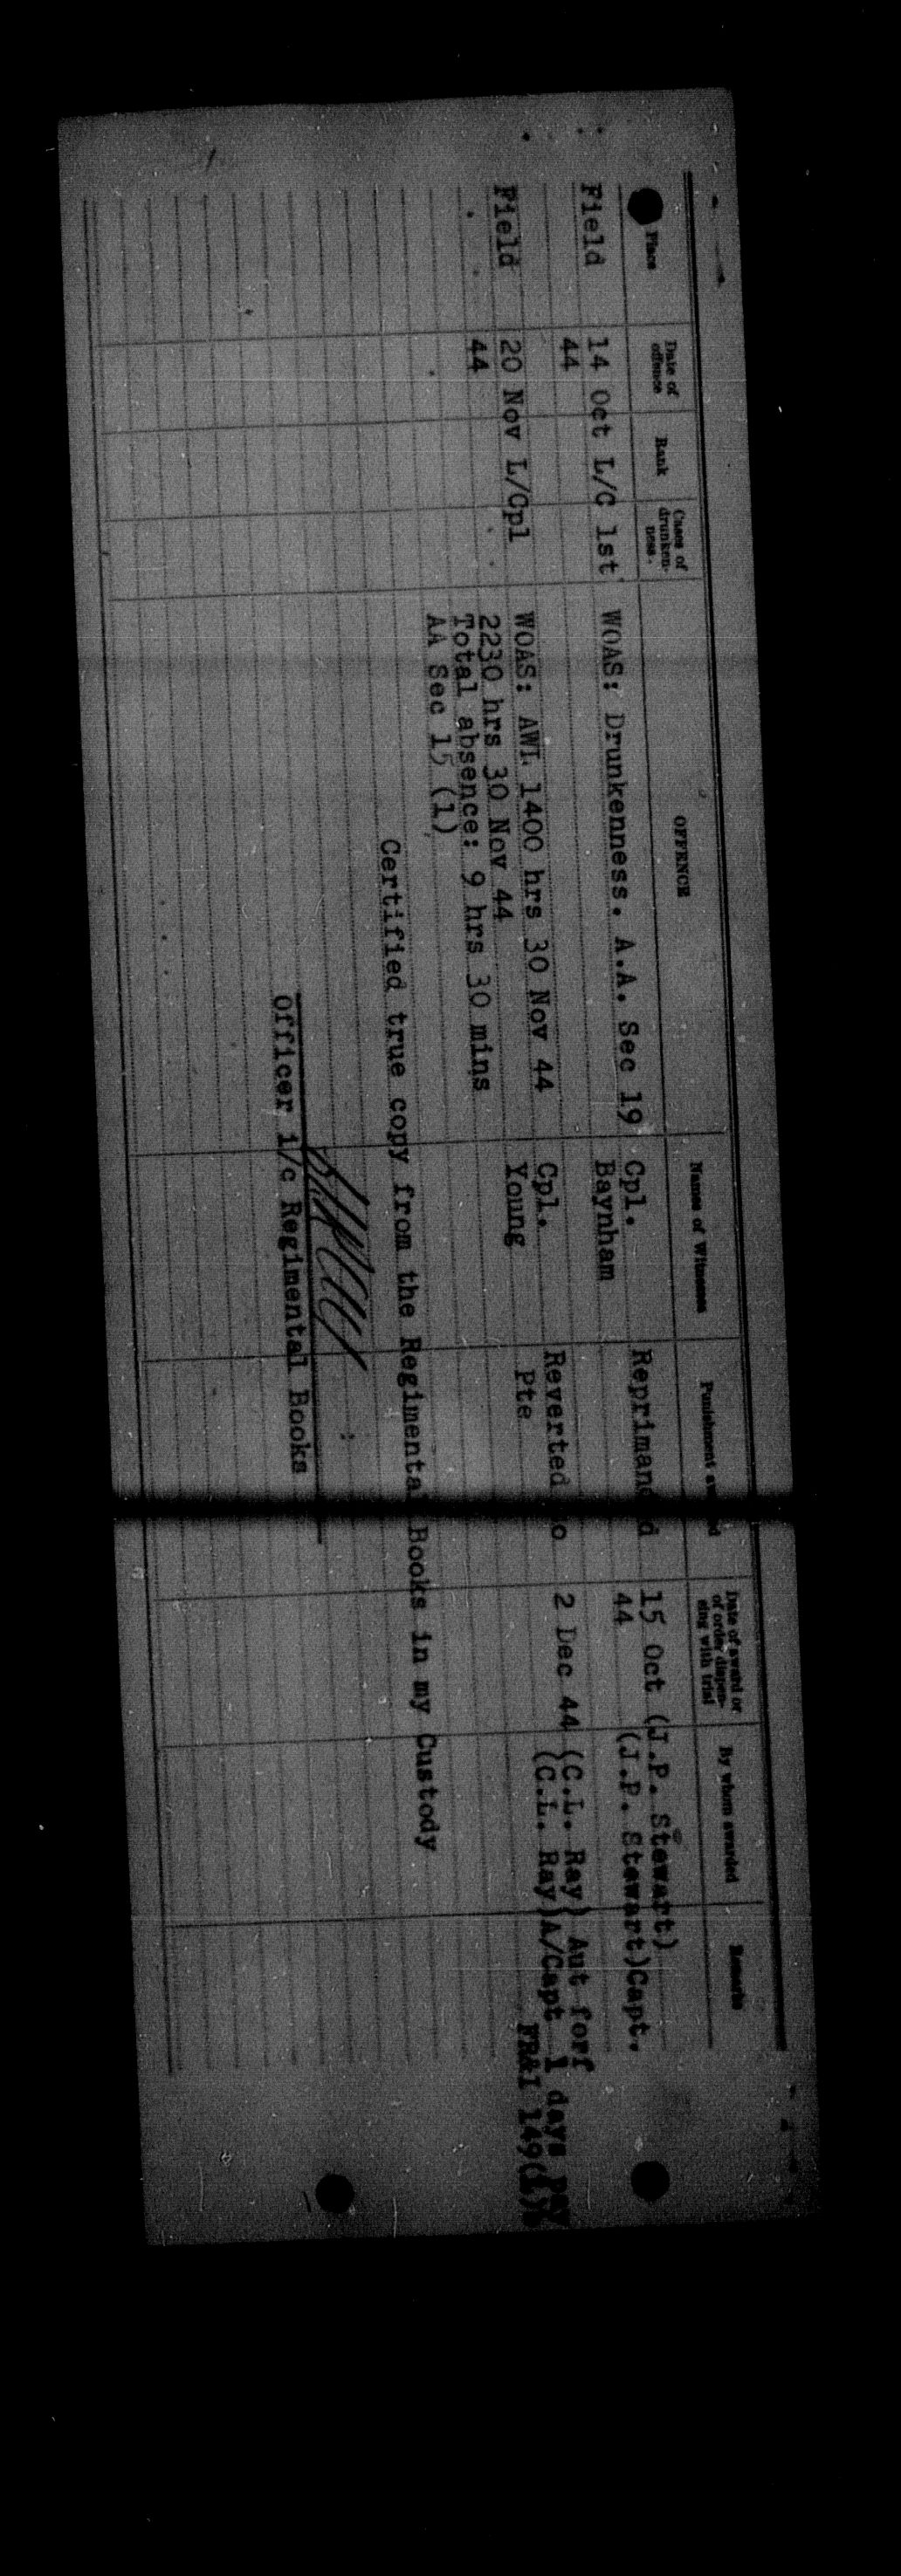 Place Date of offence Rank Cases of drunken-ness. OFFENCE Names of Witnesses Punishment awarded Date of award or of order dispen-sing with trial By whom awarded Remarks
Field 14 Oct L/C 1st WOAS: Drunkenness. A.A. Sec 19 Cpl. Reprimand 15 Oct (J.P. Stewart)
44 Baynham 44 (J.P. Stewart)Capt.
Field 20 Nov L/Cpl WOAS: AWL 1400 hrs 30 Nov 44 Cpl. Reverted to 2 Dec 44 (C.L. Ray) Aut forf
44 2230 hrs 30 Nov 44 Young Pte (C.L. Ray)A/Capt 1 days pay
Total absence: 9 hrs 30 mins FR&I 149
AA Sec 15 (1)
Certified true copy from the Regimental Books in my Custody
Officer i/c Regimental Books